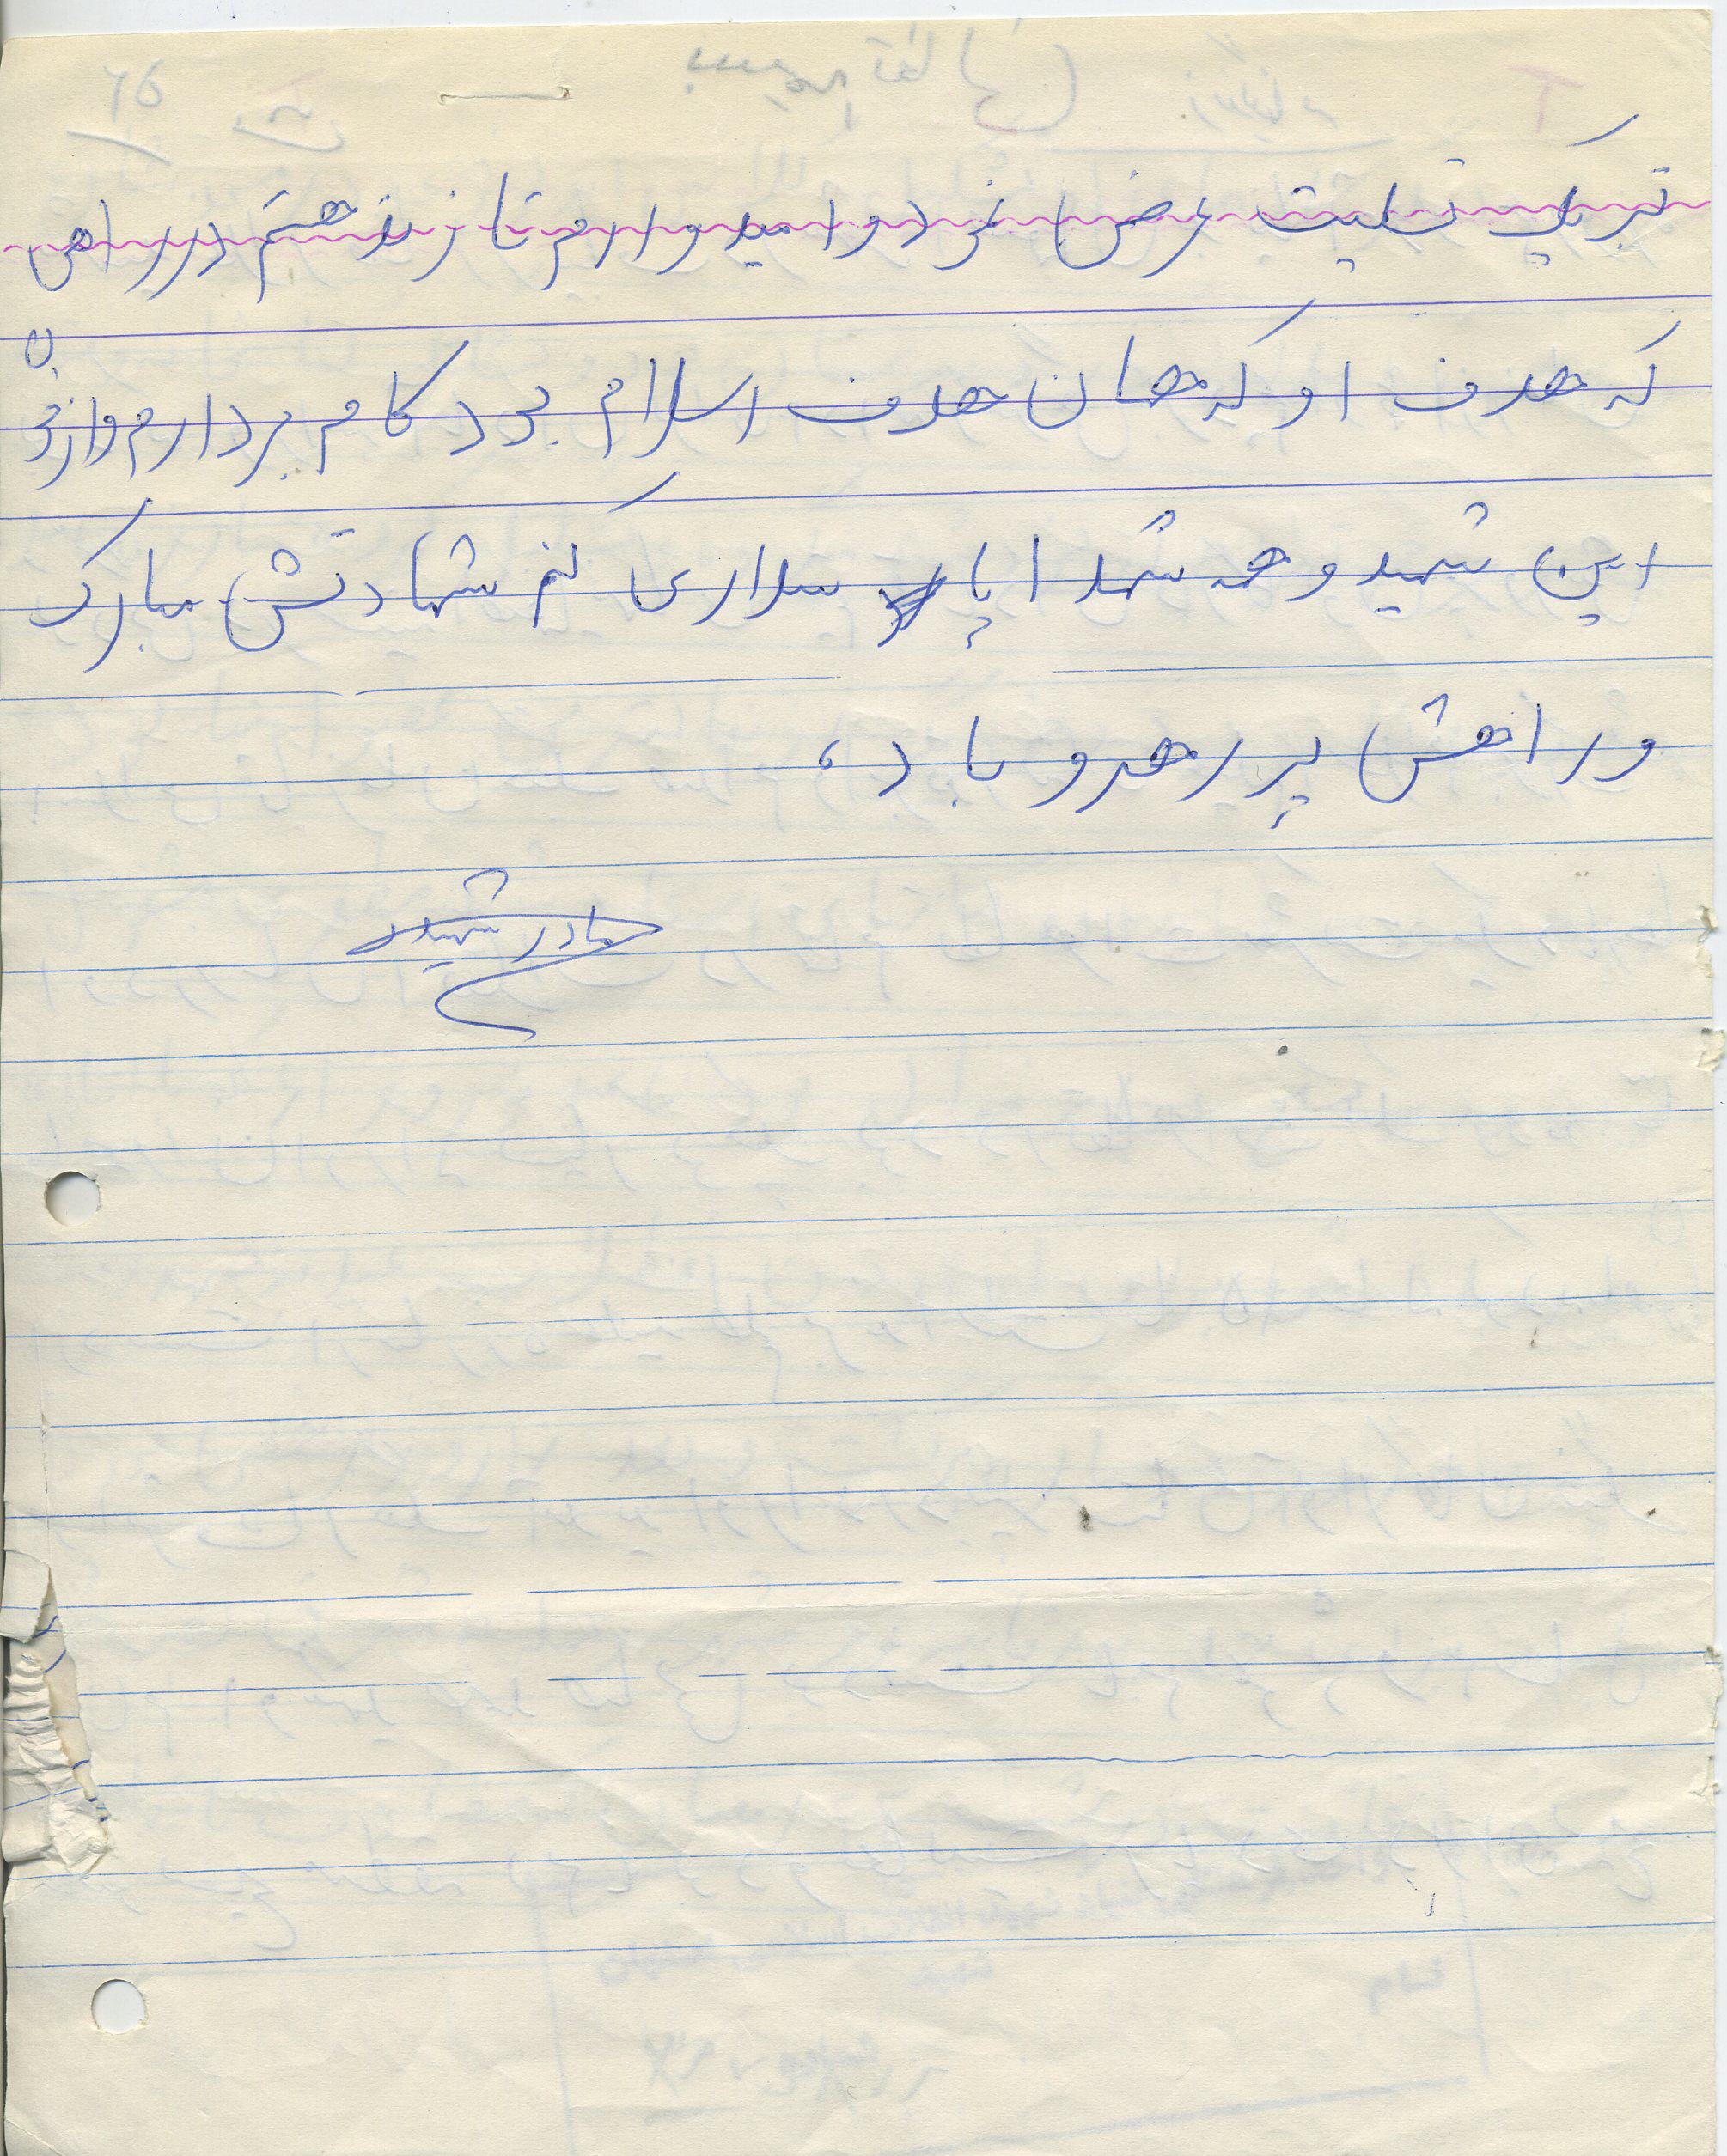 تبریک تسلیت عرض نموده و امیدوارم تا زنده هستم در راهی
که هدف او که همان هدف اسلام بود گام بردارم و از خون
این شهید و همه شهدا پاسداری کنم شهادتش مبارک
و راهش پر رهرو باد،
مادر شهید